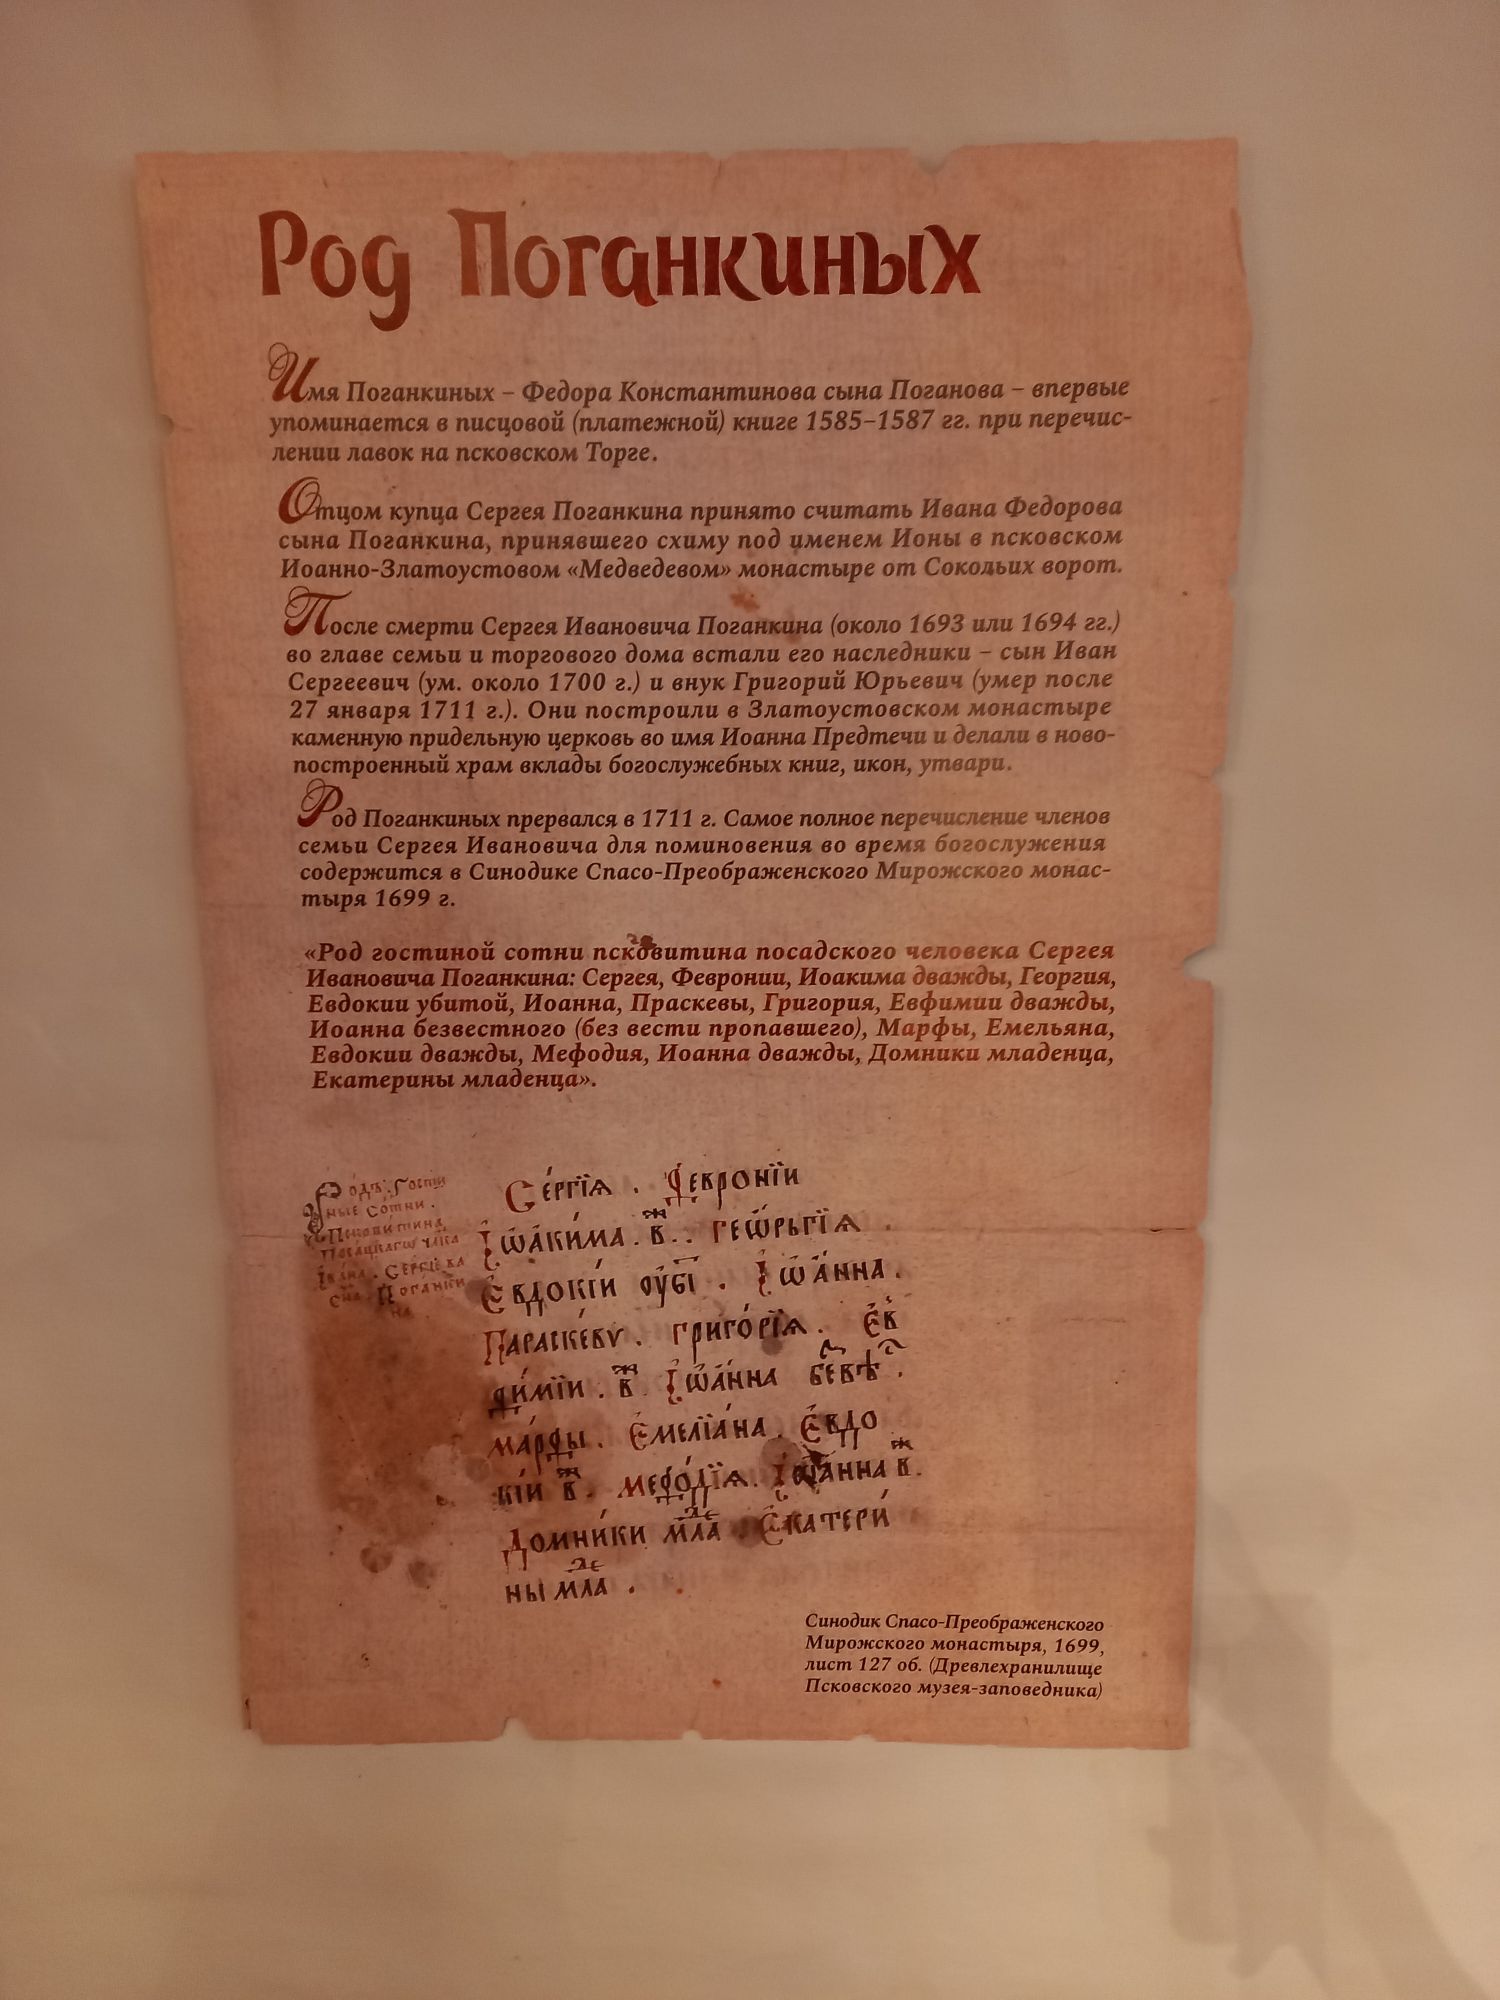 Род Поганкиных
Имя Поганкиных – Федора Константинова сына Поганова – впервые
упоминается в писцовой (платежной) книге 1585–1587 гг. при перечис-
лении лавок на псковском Торге.
Отцом купца Сергея Поганкина принято считать Ивана Федорова
сына Поганкина, принявшего схиму под именем Ионы в псковском
Иоанно-Златоустовом «Медведевом» монастыре от Сокольих ворот.
После смерти Сергея Ивановича Поганкина (около 1693 или 1694 гг.)
во главе семьи и торгового дома встали его наследники – сын Иван
Сергеевич (ум. около 1700 г.) и внук Григорий Юрьевич (умер после
27 января 1711 г.). Они построили в Златоустовском монастыре
каменную придельную церковь во имя Иоанна Предтечи и делали в ново-
построенный храм вклады богослужебных книг, икон, утвари.
Род Поганкиных прервался в 1711 г. Самое полное перечисление членов
семьи Сергея Ивановича для поминовения во время богослужения
содержится в Синодике Спасо-Преображенского Мирожского монас-
тыря 1699 г.
«Род гостиной сотни псковитина посадского человека Сергея
Ивановича Поганкина: Сергея, Февронии, Иоакима дважды, Георгия,
Евдокии убитой, Иоанна, Праскевы, Григория, Евфимии дважды,
Иоанна безвестного (без вести пропавшего), Марфы, Емельяна,
Евдокии дважды, Мефодия, Иоанна дважды, Домники младенца,
Екатерины младенца».
Родъ. Гости
ные сотни.
Псковитина
Сергіѧ . Февроніи
Іѡакима . в҃ж . . Геѡрьгіѧ .
Евдокіи ѹбі . Іѡанна .
Параскеву . Григоріѧ . Ев
фиміи . в҃ж . Іѡанна бевѣ .
Марфы . Емеліана . Евдо
кіи в҃ж . Мефодіѧ . Іѡанна в҃ж .
Домники младе . Екатери
ны младе .
Синодик Спасо-Преображенского
Мирожского монастыря, 1699,
лист 127 об. (Древлехранилище
Псковского музея-заповедника)